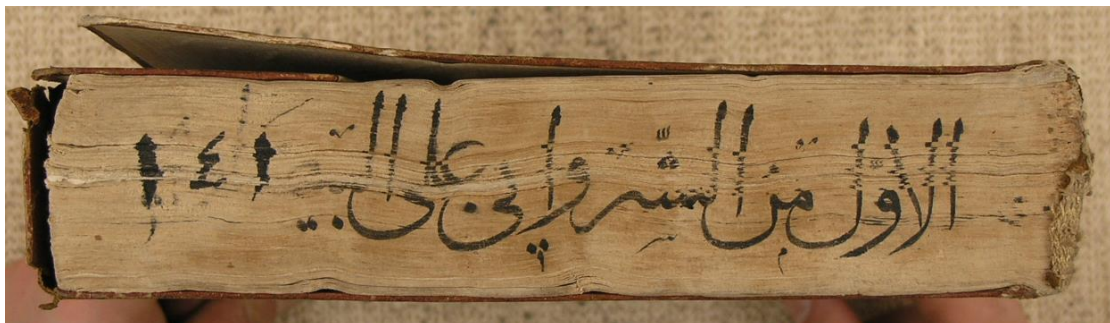 الاول من الشرواني على ١٤١